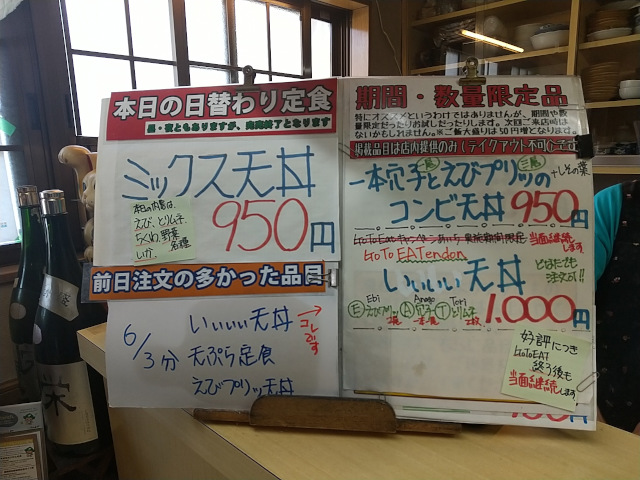 本日の日替わり定食
昼・夜ともありますが、完売終了となります
ミックス天丼
950円
本日の内容は、
えび、とりムネ、
ちくわ、野菜
いか、
前日注文の多かった品目
6/3分
いいぃい天丼
→コレです
天ぷら定食
えびプリッ天丼
期間・数量限定品
特にオススメというわけではありませんが、期間や数
量限定だったりお試しだったりします。次回ご来店時は
ないかもしれません。※ご飯大盛りは50円増となります。
掲載品目は店内提供のみ(テイクアウト不可)です
一本穴子とえびプリッの
+しその葉
コンビ天丼 950円
GoTo Eatキャンペーン
当面継続
します
GoTo EATendon
いいぃい天丼
どなたでも
注文可!!
Ebi
Anago
Tori
E
A
T
1.000円
好評につき
GoToEAT
終了後も
当面継続します
栄